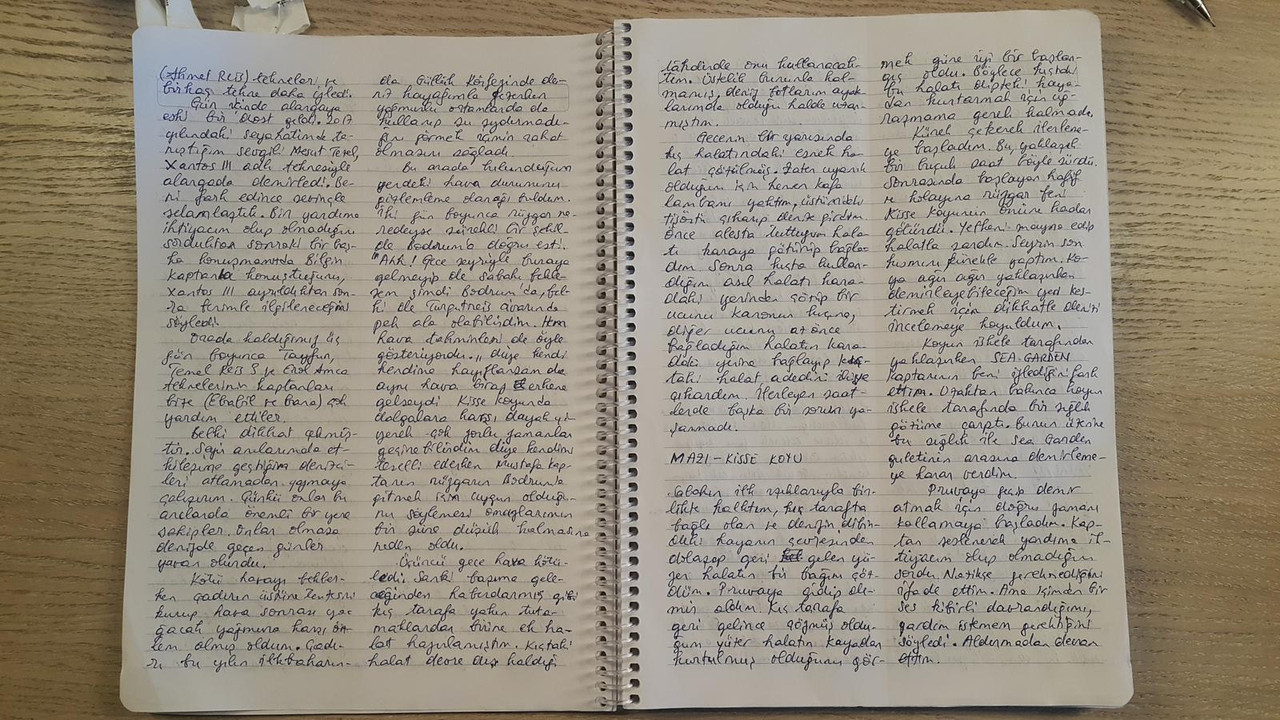 (Ahmet Reis) tekneleri ve
birkaç tekne daha işledi.
Gün içinde alargaya
eski bir dost geldi. 2017
yılındaki seyahatimde ta-
nıştığım sevgili Mesut Tezel,
Xantos III adlı teknesiyle
alargada demirledi. Be-
ni fark edince sevinçle
selamlaştık. Bir yardıma
ihtiyacım olup olmadığını
sorduktan sonraki bir baş-
ka konuşmamda Bilgin
kaptanla konuştuğunu,
Xantos III ayrıldıktan son-
ra benimle ilgileneceğini
söyledi.
Orada kaldığımız üç
gün boyunca Tayfun,
Temel Reis 5 ve Erol Amca
teknelerinin kaptanları
bize (Ebabil ve bana) çok
yardım ettiler.
Belki dikkat çekmiş-
tir. Seyir anılarımda et-
kileşime geçtiğim denizci-
leri atlamadan yazmaya
çalışırım. Çünkü onlar bu
anılarda önemli bir yere
sahipler. Onlar olmasa
denizde geçen günler
yavan olurdu.
Kötü havayı bekler-
ken çadırın üstüne tentesini
kurup hava sonrası yağa-
cak yağmura karşı ön-
lem almış oldum. Çadı-
rı bu yılın ilkbaharın-
da Güllük Körfezinde de-
niz kayağımla gezerken
yağmurlu ortamlarda da
kullanıp su sızdırmadı-
ğını görmek içimin rahat
olmasını sağladı.
Bu arada bulunduğum
yerdeki hava durumunu
gözlemleme olanağı buldum.
İki gün boyunca rüzgar ne-
redeyse sürekli bir şekil-
de Bodrum'a doğru esti.
"Ahh! Gece seyriyle buraya
gelmeyip de sabahı bekle-
sem şimdi Bodrum'da, bel-
ki de Turgutreis civarında
pek ala olabilirdim. Hem
hava tahminleri de öyle
gösteriyordu." diye kendi
kendime hayıflansam da
aynı hava biraz erkene
gelseydi Kisse koyunda
dalgalara karşı dayak yi-
yerek çok zorlu zamanlar
geçirebilirdim diye kendimi
teselli ederken Mustafa kap-
tanın rüzgarın Bodrum'a
gitmek için uygun olduğu-
nu söylemesi omuzlarımın
bir süre düşük kalmasına
neden oldu.
Üçüncü gece hava kötü-
ledi. Sanki başıma gele-
ceğinden haberdarmış gibi
kıç tarafa yakın tuta-
maklardan birine ek ha-
lat hazırlamıştım. Kıçtaki
halat devre dışı kaldığı
takdirde onu kullanacak-
tım. Üstelik bununla kal-
mamış, deniz botlarım ayak-
larımda olduğu halde uzan-
mıştım.
Gecenin bir yarısında
kıç halatındaki esnek ha-
lat götürülmüş. Zaten uyanık
olduğum için hemen kafa
lambamı yaktım, üstümdeki
tişörtü çıkarıp denize girdim.
Önce alesta tuttuğum hala-
tı karaya götürüp bağla-
dım. Sonra kıçta kullan-
dığım asıl halatı kara-
daki yerinden çözüp bir
ucunu kanonun kıçına,
diğer ucunu az önce
bağladığım halatın kara-
daki yerine bağlayıp kıç-
taki halat adedini ikiye
çıkardım. İlerleyen saat-
lerde başka bir sorun ya-
şanmadı.
MAZI - KISSE KOYU
Sabahın ilk ışıklarıyla bir-
likte kalktım, kıç tarafta
bağlı olan ve denizin dibin-
deki kayanın çevresinden
dolaşıp geri gelen yü-
zer halatın bir bağını çöz-
düm. Pruvaya gidip de-
mir aldım. Kıç tarafa
geri gelince çözmüş oldu-
ğum yüzer halatın kayadan
kurtulmuş olduğunu gör-
mek güne iyi bir başlan-
gıç oldu. Böylece kıçtaki
bu halatı dipteki kaya-
dan kurtarmak için uğ-
raşmama gerek kalmadı.
Kürek çekerek ilerleme-
ye başladım. Bu, yaklaşık
bir buçuk saat böyle sürdü.
Sonrasında başlayan hafif
ve kolayına rüzgar beni
Kisse koyunun önüne kadar
götürdü. Yelkeni mayna edip
halatla sardım. Seyrin son
kısmını kürekle yaptım. Ko-
ya ağır ağır yaklaşırken
demirleyebileceğim yeri kes-
tirmek için dikkatle denizi
incelemeye koyuldum.
Koyun iskele tarafından
yaklaşırken SEA GARDEN
kaptanının beni izlediğini fark
ettim. Uzaktan bakınca koyun
iskele tarafında bir sığlık
gözüme çarptı. Bunun üzerine
bu sığlık ile Sea Garden
guletinin arasına demirleme-
ye karar verdim.
Pruvaya geçip demir
atmak için doğru zamanı
kollamaya başladım. Kap-
tan seslenerek yardıma ih-
tiyacım olup olmadığını
sordu. Nazikçe gerekmediğini
ifade ettim. Ama içimden bir
ses kibirli davrandığımı,
yardım istemem gerektiğini
söyledi. Aldırmadan devam
ettim.